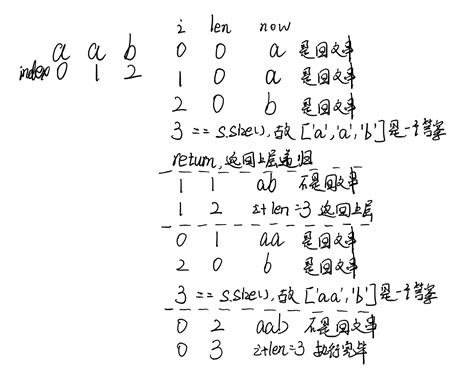 i len now
a a b 0 0 a 是回文串
index 0 1 2 1 0 a 是回文串
2 0 b 是回文串
3 == s.size(), 故['a','a','b']是一个答案
return, 返回上层递归
1 1 ab 不是回文串
1 2 i+len=3 返回上层
0 1 aa 是回文串
2 0 b 是回文串
3 == s.size(), 故['aa','b']是一个答案
0 2 aab 不是回文串
0 3 i+len=3 执行完毕